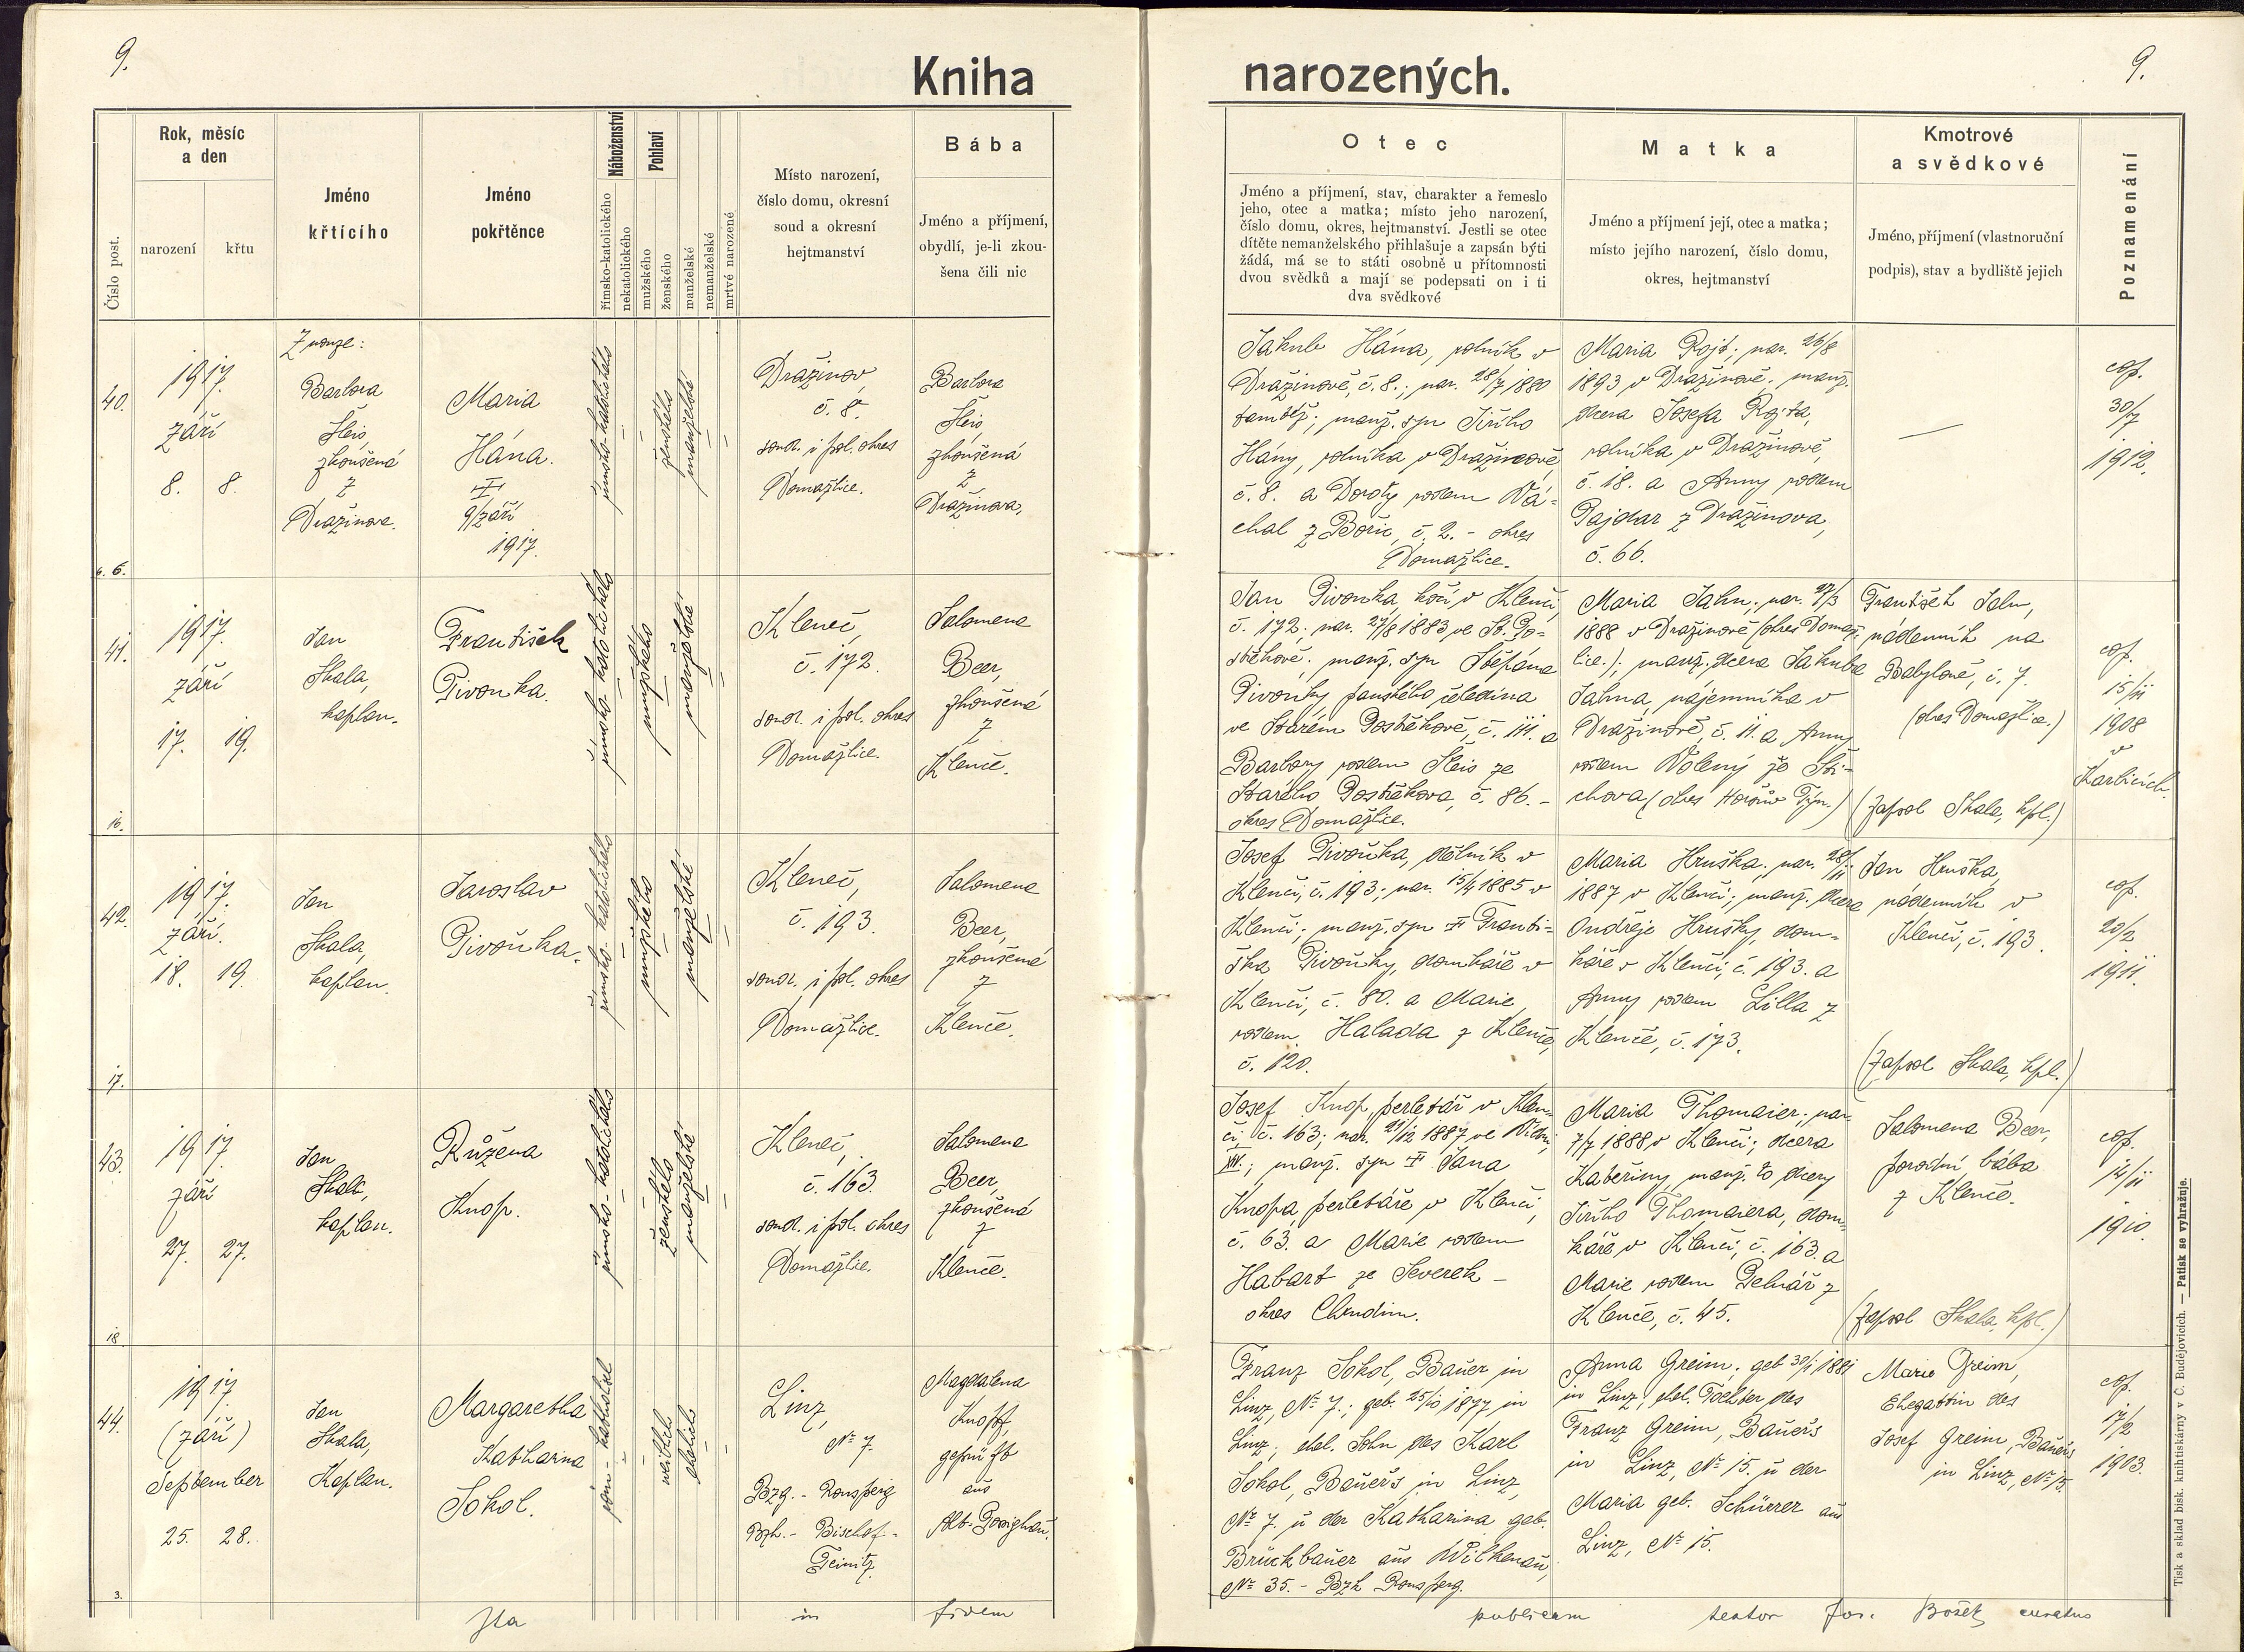 9.
Kniha
narozených.
9.
Číslo post.
Rok, měsíc
a den
narození
křtu
Jméno
křtícího
Jméno
pokřtěnce
Náboženství
římsko-katolického
nekatolického
Pohlaví
mužského
ženského
manželské
nemanželské
mrtvé narozené
Místo narození,
číslo domu, okresní
soud a okresní
hejtmanství
Bába
Jméno a příjmení,
obydlí, je-li zkou-
šena čili nic
Otec
Jméno a příjmení, stav, charakter a řemeslo
jeho, otec a matka; místo jeho narození,
číslo domu, okres, hejtmanství. Jestli se otec
dítěte nemanželského přihlašuje a zapsán býti
žádá, má se to státi osobně u přítomnosti
dvou svědků a mají se podepsati on i ti
dva svědkové
Matka
Jméno a příjmení její, otec a matka;
místo jejího narození, číslo domu,
okres, hejtmanství
Kmotrové
a svědkové
Jméno, příjmení (vlastnoruční
podpis), stav a bydliště jejich
Poznamenání
40.
6.
1917.
září
8. 8.
Z nouze:
Barbora
Šleis,
zkoušená
z
Dražinova.
Maria
Hána.
9/září
1917.
římsko-katolického
ženského
manželské
Dražinov,
č. 8.
soud. i pol. okres
Domažlice.
Barbora
Šleis,
zkoušená
z
Dražinova.
Jakub Hána, rolník v
Dražinově, č. 8.; nar. 28/7 1880
tamtéž; manž. syn Jiřího
Hány, rolníka v Dražinově,
č. 8. a Doroty rodem Vá-
chal z Bořic, č. 2. - okres
Domažlice.
Maria Rojt; nar. 26/8
1893 v Dražinově; manž.
dcera Josefa Rojta,
rolníka v Dražinově,
č. 18. a Anny rodem
Pajdar z Dražinova,
č. 66.
cop.
30/7
1912.
41.
16.
1917.
září
17. 19.
Jan
Skala,
kaplan.
František
Pivonka.
římsko-katolického
mužského
manželské
Kleneč,
č. 172.
soud. i pol. okres
Domažlice.
Salomena
Beer,
zkoušená
z
Klenče.
Jan Pivonka, kočí v Klenči,
č. 172; nar. 27/8 1883 ve St. Po-
stěkově; manž. syn Štěpána
Pivonky, panského čeledína
ve Starém Postřekově, č. 111. a
Barbory rodem Šleis ze
Starého Postřekova, č. 86. -
okres Domažlice.
Maria Jahn; nar. 27/3
1888 v Dražinově (okres Domaž-
lice.); manž. dcera Jakuba
Jahna, nájemníka v
Dražinově, č. 11. a Anny
rodem Volený ze Sti-
chova (okres Horšův Týn.)
František Jahn,
nádenník na
Babyloně, č. 7.
(okres Domažlice.)
(Zapsal Skala, kpl.)
cop.
15/11
1908
v
Karbicích.
42.
17.
1917.
září.
18. 19.
Jan
Skala,
kaplan.
Jaroslav
Pivoňka.
římsko-katolického
mužského
manželské
Kleneč,
č. 193.
soud. i pol. okres
Domažlice.
Salomena
Beer,
zkoušená
z
Klenče.
Josef Pivoňka, dělník v
Klenči, č. 193; nar. 15/4 1885 v
Klenči; manž. syn Franti-
ška Pivoňky, domkáře v
Klenči, č. 80. a Marie,
rodem Halada z Klenče,
č. 120.
Maria Hruška; nar. 28/11
1887 v Klenči; manž. dcera
Ondřeje Hrušky, dom-
káře v Klenči, č. 193. a
Anny rodem Lilla z
Klenče, č. 173.
Jan Hruška,
nádenník v
Klenči, č. 193.
(Zapsal Skala, kpl.)
cop.
20/2
1911.
43.
18
1917
září
27. 27.
Jan
Skala,
kaplan.
Růžena
Knop.
římsko-katolického
ženského
manželské
Kleneč,
č. 163.
soud. i pol. okres
Domažlice.
Salomena
Beer,
zkoušená
z
Klenče.
Josef Knop, perletář v Klen-
či, č. 163; nar. 21/12 1887 ve Vídni,
manž. syn Jana
Knopa, perletáře v Klenči,
č. 63. a Marie rodem
Habart ze Severek -
okres Chrudim.
Maria Thomaier; nar.
7/7 1888 v Klenči; dcera
Kateřiny, manž. to dcery
Jiřího Thomaiera, dom-
káře v Klenči, č. 163. a
Marie rodem Pelnář z
Klenče, č. 45.
Salomena Beer,
porodní bába
z Klenče.
(Zapsal Skala, kpl.)
cop.
14/11
1910.
44.
3.
1917
(září)
September
25. 28.
Jan
Skala,
Kaplan.
Margaretha
Katharina
Sokol.
röm-katholisch
weiblich
ehelich
Linz,
Nº 7.
Bzg. - Ronsperg
Bzh. - Bischof-
Teinitz.
Magdalena
Knopf,
geprüft
aus
Alt-Possighau.
Franz Sokol, Bauer in
Linz, Nº 7.; geb. 25/10 1877 in
Linz; ehel. Sohn des Karl
Sokol, Bauers in Linz,
Nº 7. u der Katharina geb.
Bruckbauer aus Wilkenau,
Nº 35. - Bzh Ronsperg.
Anna Greim; geb 30/1 1881
in Linz; ehel. Tochter des
Franz Greim, Bauers
in Linz, Nº 15. u der
Maria geb. Schürrer aus
Linz, Nº 15.
Marie Greim,
Ehegattin des
Josef Greim, Bauers
in Linz, Nº 15.
cop.
17/2
1903.
Ita in fidem publicam testor Jos. Bošek, curatus
Tisk a sklad tisk. knihtiskárny v Č. Budějovicích. — Patisk se vyhražuje.